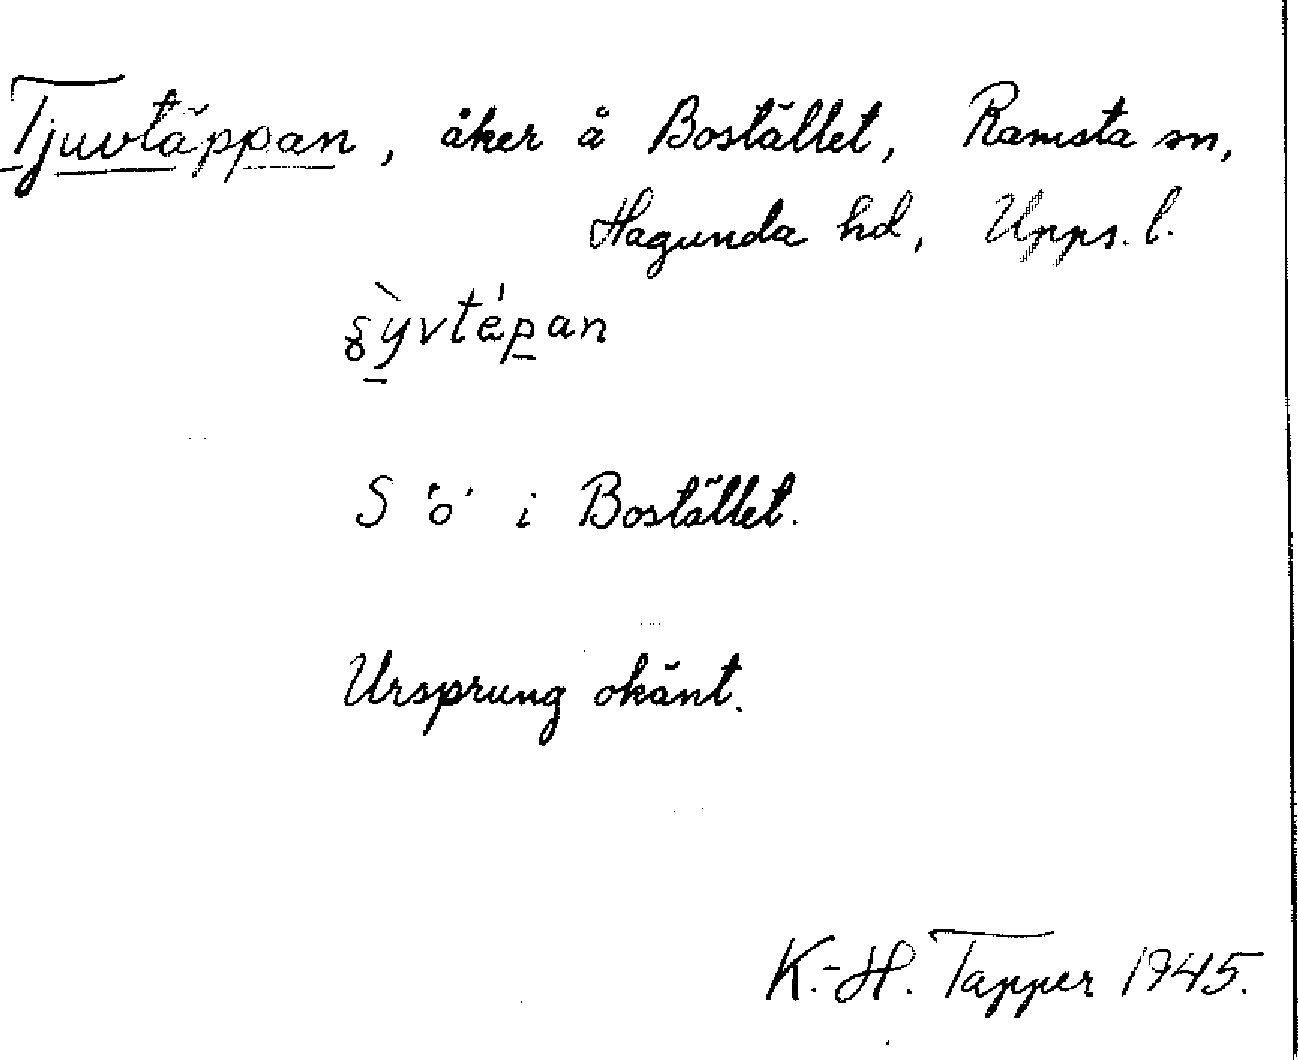 Tjuvtäppan, åker å Bostället, Ramsta sn,
Hagunda hd, Upps. l.
S ö i Bostället.
Ursprung okänt.
K.-H. Tapper 1945.